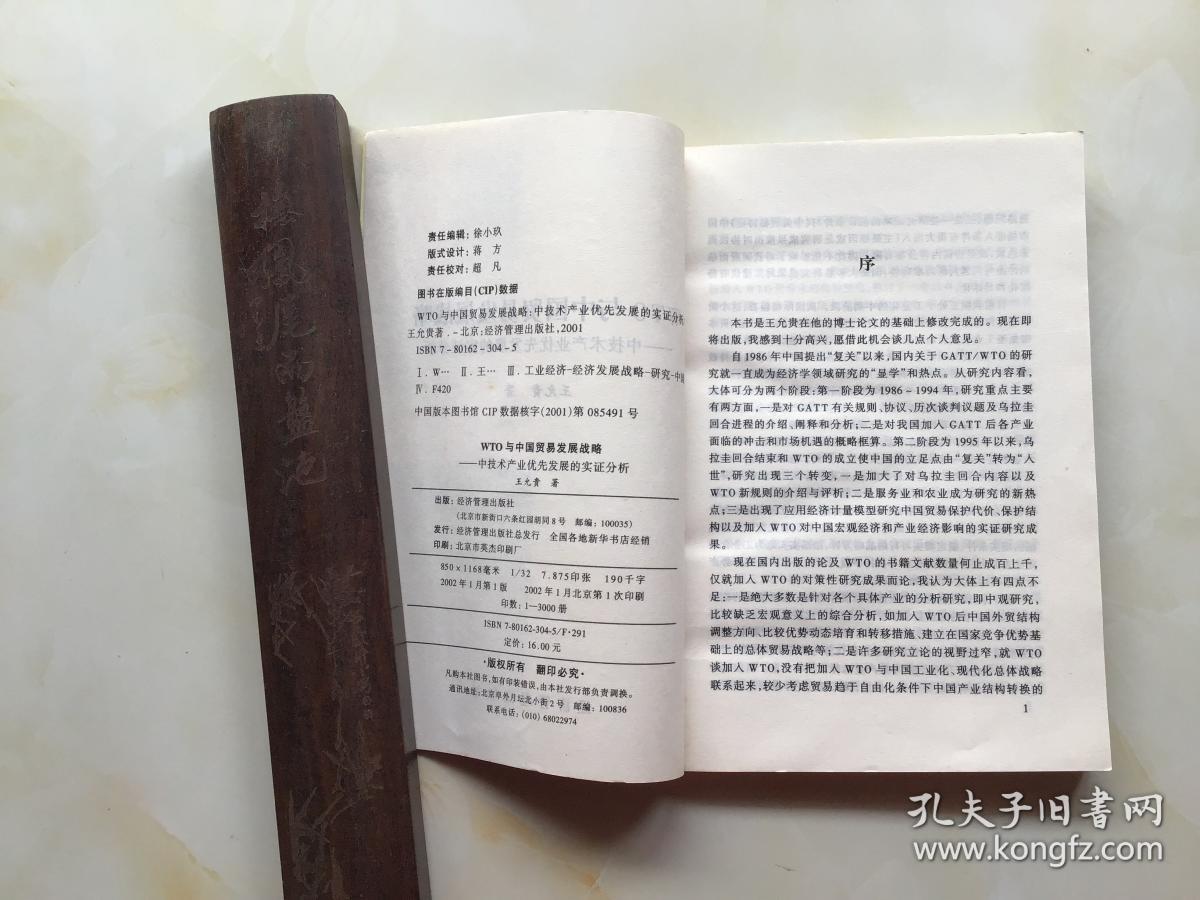 责任编辑：徐小玖
版式设计：蒋　方
责任校对：超　凡
图书在版编目(CIP)数据
WTO与中国贸易发展战略：中技术产业优先发展的实证分析
王允贵著．－北京：经济管理出版社，2001
ISBN 7－80162－304－5
Ⅰ．W…　Ⅱ．王…　Ⅲ．工业经济－经济发展战略－研究－中国
Ⅳ．F420
中国版本图书馆CIP数据核字(2001)第085491号
WTO与中国贸易发展战略
——中技术产业优先发展的实证分析
王允贵　著
出版：经济管理出版社
(北京市新街口六条红园胡同8号　邮编：100035)
发行：经济管理出版社总发行　全国各地新华书店经销
印刷：北京市英杰印刷厂
850×1168毫米　1/32　7.875印张　190千字
2002年1月第1版　2002年1月北京第1次印刷
印数：1—3000册
ISBN 7-80162-304-5/F·291
定价：16.00元
·版权所有　翻印必究·
凡购本社图书，如有印装错误，由本社发行部负责调换。
通讯地址：北京阜外月坛北小街2号　邮编：100836
联系电话：(010) 68022974
序
本书是王允贵在他的博士论文的基础上修改完成的。现在即
将出版，我感到十分高兴，愿借此机会谈几点个人意见。
自1986年中国提出“复关”以来，国内关于GATT/WTO的研
究就一直成为经济学领域研究的“显学”和热点。从研究内容看，
大体可分为两个阶段：第一阶段为1986－1994年，研究重点主要
有两方面，一是对GATT有关规则、协议、历次谈判议题及乌拉圭
回合进程的介绍、阐释和分析；二是对我国加入GATT后各产业
面临的冲击和市场机遇的概略框算。第二阶段为1995年以来，乌
拉圭回合结束和WTO的成立使中国的立足点由“复关”转为“入
世”，研究出现三个转变，一是加大了对乌拉圭回合内容以及
WTO新规则的介绍与评析；二是服务业和农业成为研究的新热
点；三是出现了应用经济计量模型研究中国贸易保护代价、保护结
构以及加入WTO对中国宏观经济和产业经济影响的实证研究成
果。
现在国内出版的论及WTO的书籍文献数量何止成百上千，
仅就加入WTO的对策性研究成果而论，我认为大体上有四点不
足：一是绝大多数是针对各个具体产业的分析研究，即中观研究，
比较缺乏宏观意义上的综合分析，如加入WTO后中国外贸结构
调整方向、比较优势动态培育和转移措施、建立在国家竞争优势基
础上的总体贸易战略等；二是许多研究立论的视野过窄，就WTO
谈加入WTO，没有把加入WTO与中国工业化、现代化总体战略
联系起来，较少考虑贸易趋于自由化条件下中国产业结构转换的
1
孔夫子旧书网
www.kongfz.com